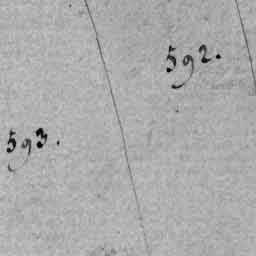 592.
593.